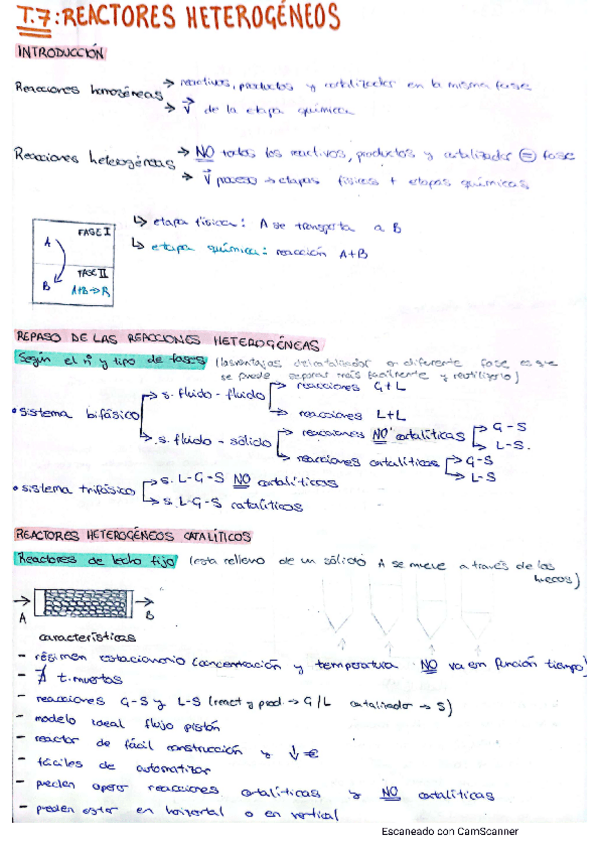 T.7: REACTORES HETEROGÉNEOS
INTRODUCCIÓN
Reacciones homogéneas → reactivos, productos y catalizador en la misma fase
→ V de la etapa química
Reacciones heterogéneas → NO todos los reactivos, productos y catalizador = fase
→ V proceso → etapas físicas + etapas químicas
FASE I
A
FASE II
B A+B→R
↳ etapa física: A se transporta a B
↳ etapa química: reacción A+B
REPASO DE LAS REACCIONES HETEROGÉNEAS
Según el nº y tipo de fases (las ventajas del catalizador en diferente fase es que
se puede separar más facilmente y reutilizarlo)
• sistema bifásico
s. fluido - fluido
reacciones G+L
reacciones L+L
s. fluido - sólido
reacciones NO catalíticas
G-S
L-S.
reacciones catalíticas
G-S
L-S
• sistema trifásico
s. L-G-S NO catalíticas
s. L-G-S catalíticos
REACTORES HETEROGÉNEOS CATALÍTICOS
Reactores de lecho fijo (esta relleno de un sólido A se mueve a través de los
huecos)
A B
características
- régimen estacionario (concentración y temperatura NO va en función tiempo)
- ∄ t. muertos
- reacciones G-S y L-S (react y prod → G/L catalizador → S)
- modelo ideal flujo pistón
- reactor de fácil construcción y ↓€
- fáciles de automatizar
- pueden operar reacciones catalíticas y NO catalíticas
- pueden estar en horizontal o en vertical
Escaneado con CamScanner